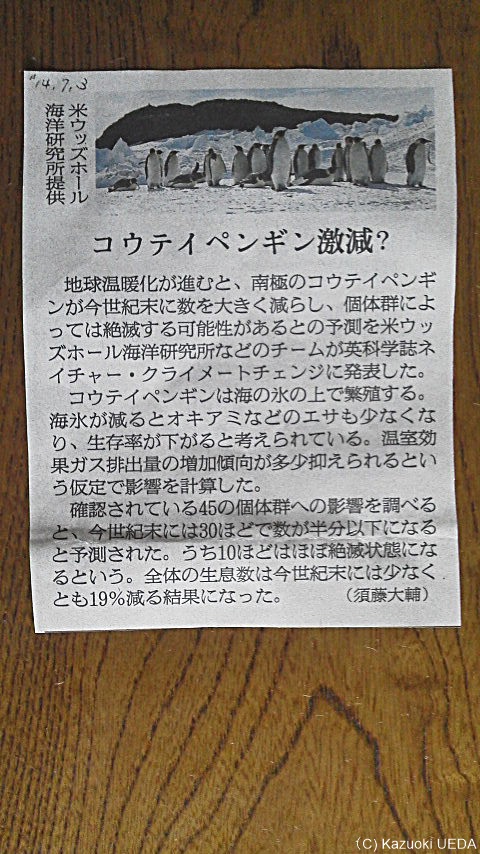 '14.7.3
米ウッズホール
海洋研究所提供
コウテイペンギン激減?
地球温暖化が進むと、南極のコウテイペンギ
ンが今世紀末に数を大きく減らし、個体群によ
っては絶滅する可能性があるとの予測を米ウッ
ズホール海洋研究所などのチームが英科学誌ネ
イチャー・クライメートチェンジに発表した。
コウテイペンギンは海の氷の上で繁殖する。
海氷が減るとオキアミなどのエサも少なくな
り、生存率が下がると考えられている。温室効
果ガス排出量の増加傾向が多少抑えられるとい
う仮定で影響を計算した。
確認されている45の個体群への影響を調べる
と、今世紀末には30ほどで数が半分以下になる
と予測された。うち10ほどはほぼ絶滅状態にな
るという。全体の生息数は今世紀末には少なく
とも19%減る結果になった。 (須藤大輔)
(C) Kazuoki UEDA